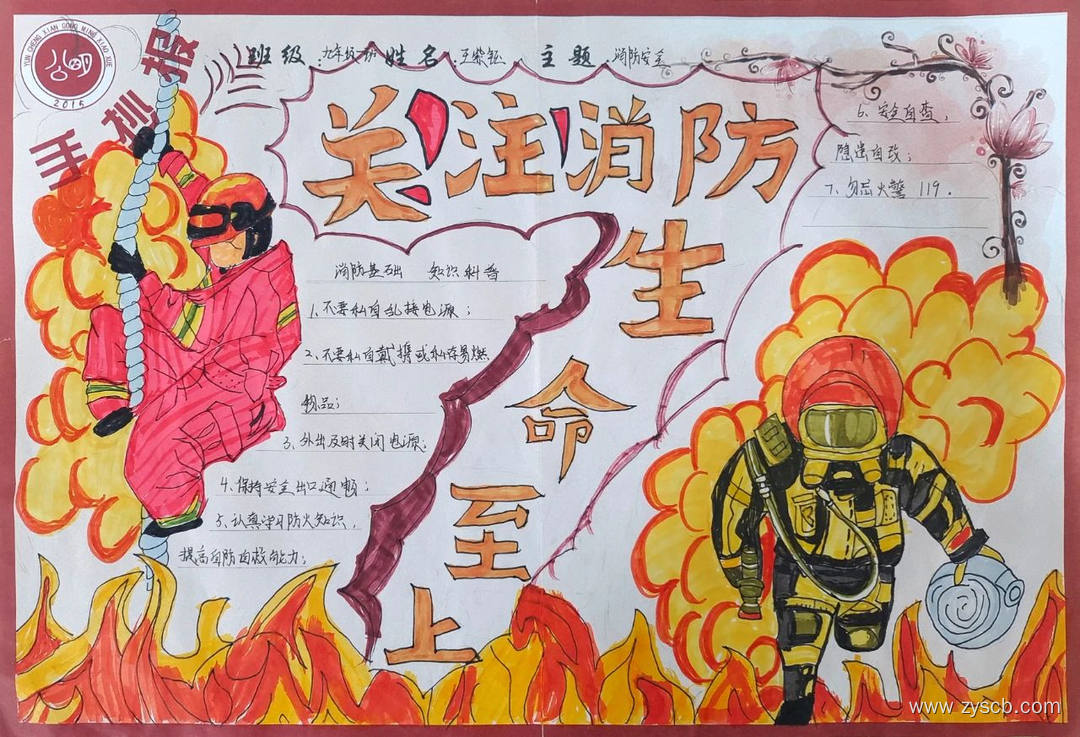 YUN CHENG XIAN GONG MING XIAO XUE
2015
手抄报
班级：九年级一份 姓名：王紫钰 主题：消防安全
关注消防
生
命
至
上
消防基础 知识科普
1、不要私自乱接电源；
2、不要私自戴携或私存易燃
物品；
3、外出及时关闭电源；
4、保持安全出口通畅；
5、认真学习防火知识，
提高自防自救能力；
6、安全自查，
隐患自改；
7、勿忘火警 119.
www.zyscb.com